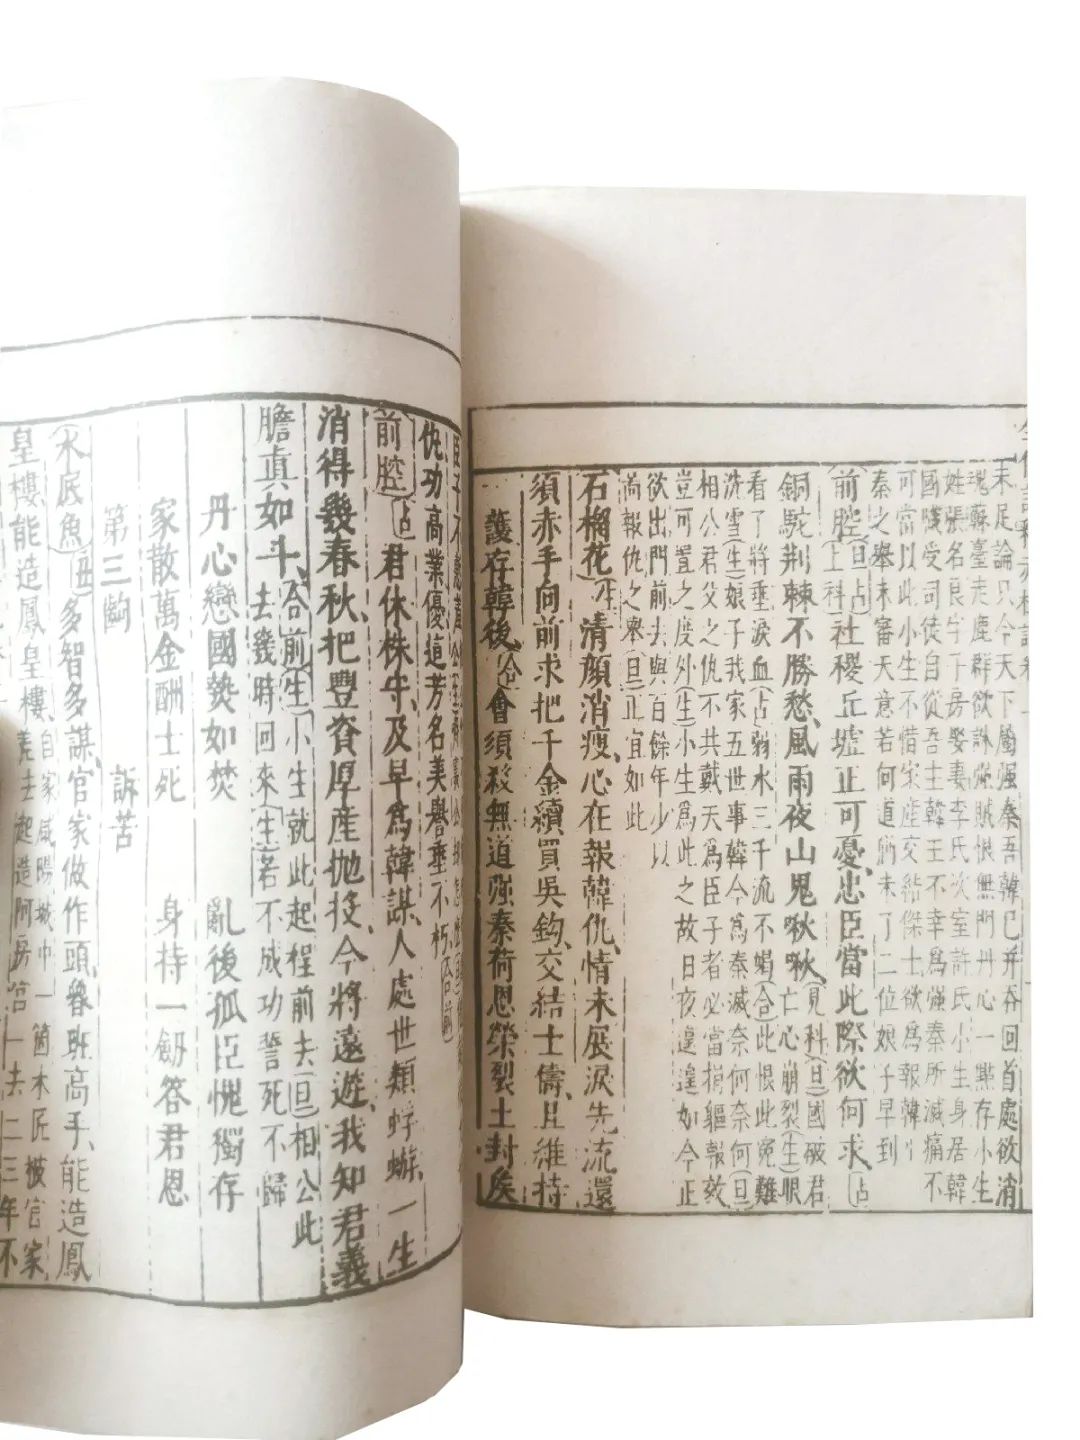 末足論只今天下屬强秦吾韓已并吞回首處欲消
魂蘇臺走鹿群欲訴强賊恨無門丹心一㸃存小生
姓張名良字子房娶妻李氏次室許氏小生身居韓
國賤受司徒自從吾主韓王不幸爲强秦所滅痛不
可當以此小生不惜家産交結傑士欲爲報韓
秦之舉未審天意若何道猶未了二位娘子早到
前腔(旦占上科)社稷丘墟正可憂忠臣當此際欲何求(占)
銅駝荆棘不勝愁風雨夜山鬼啾啾(見科)(旦)國破君
亡心崩裂(生)眼
看了將垂淚血(占)弱水三千流不竭(合)此恨此寃難
洗雪(生)娘子我家五世事韓今爲秦滅奈何奈何(旦)
相公君父之仇不共戴天爲臣子者必當捐軀報效
豈可置之度外(生)小生爲此之故日夜遑遑如今正
欲出門前去與百餘年少以
尚報仇之舉(旦)正宜如此
石榴花(生)清顔消瘦心在報韓仇情未展淚先流還
須赤手向前求把千金續買吳鈎交結士儔且維持
護存韓後(合)會須殺無道强秦荷恩榮裂土封侯
仇功高業優這芳名美譽垂不朽(合前)
前腔(占)君休株守及早爲韓謀人處世類蜉蝣一生
消得幾春秋把豐資厚産抛投今將遠遊我知君義
膽眞如斗(合前)(生)小生就此起程前去(旦)相公此
去幾時回來(生)若不成功誓死不歸
丹心戀國㷀如焚 亂後孤臣愧獨存
家散萬金酬士死 身持一劒答君恩
第三齣 訴苦
水底魚(丑)多智多謀官家做作頭衆班高手能造鳳
皇樓能造鳳皇樓自家咸陽城中一箇木匠被官家
差去起造阿房宮一去二三年不